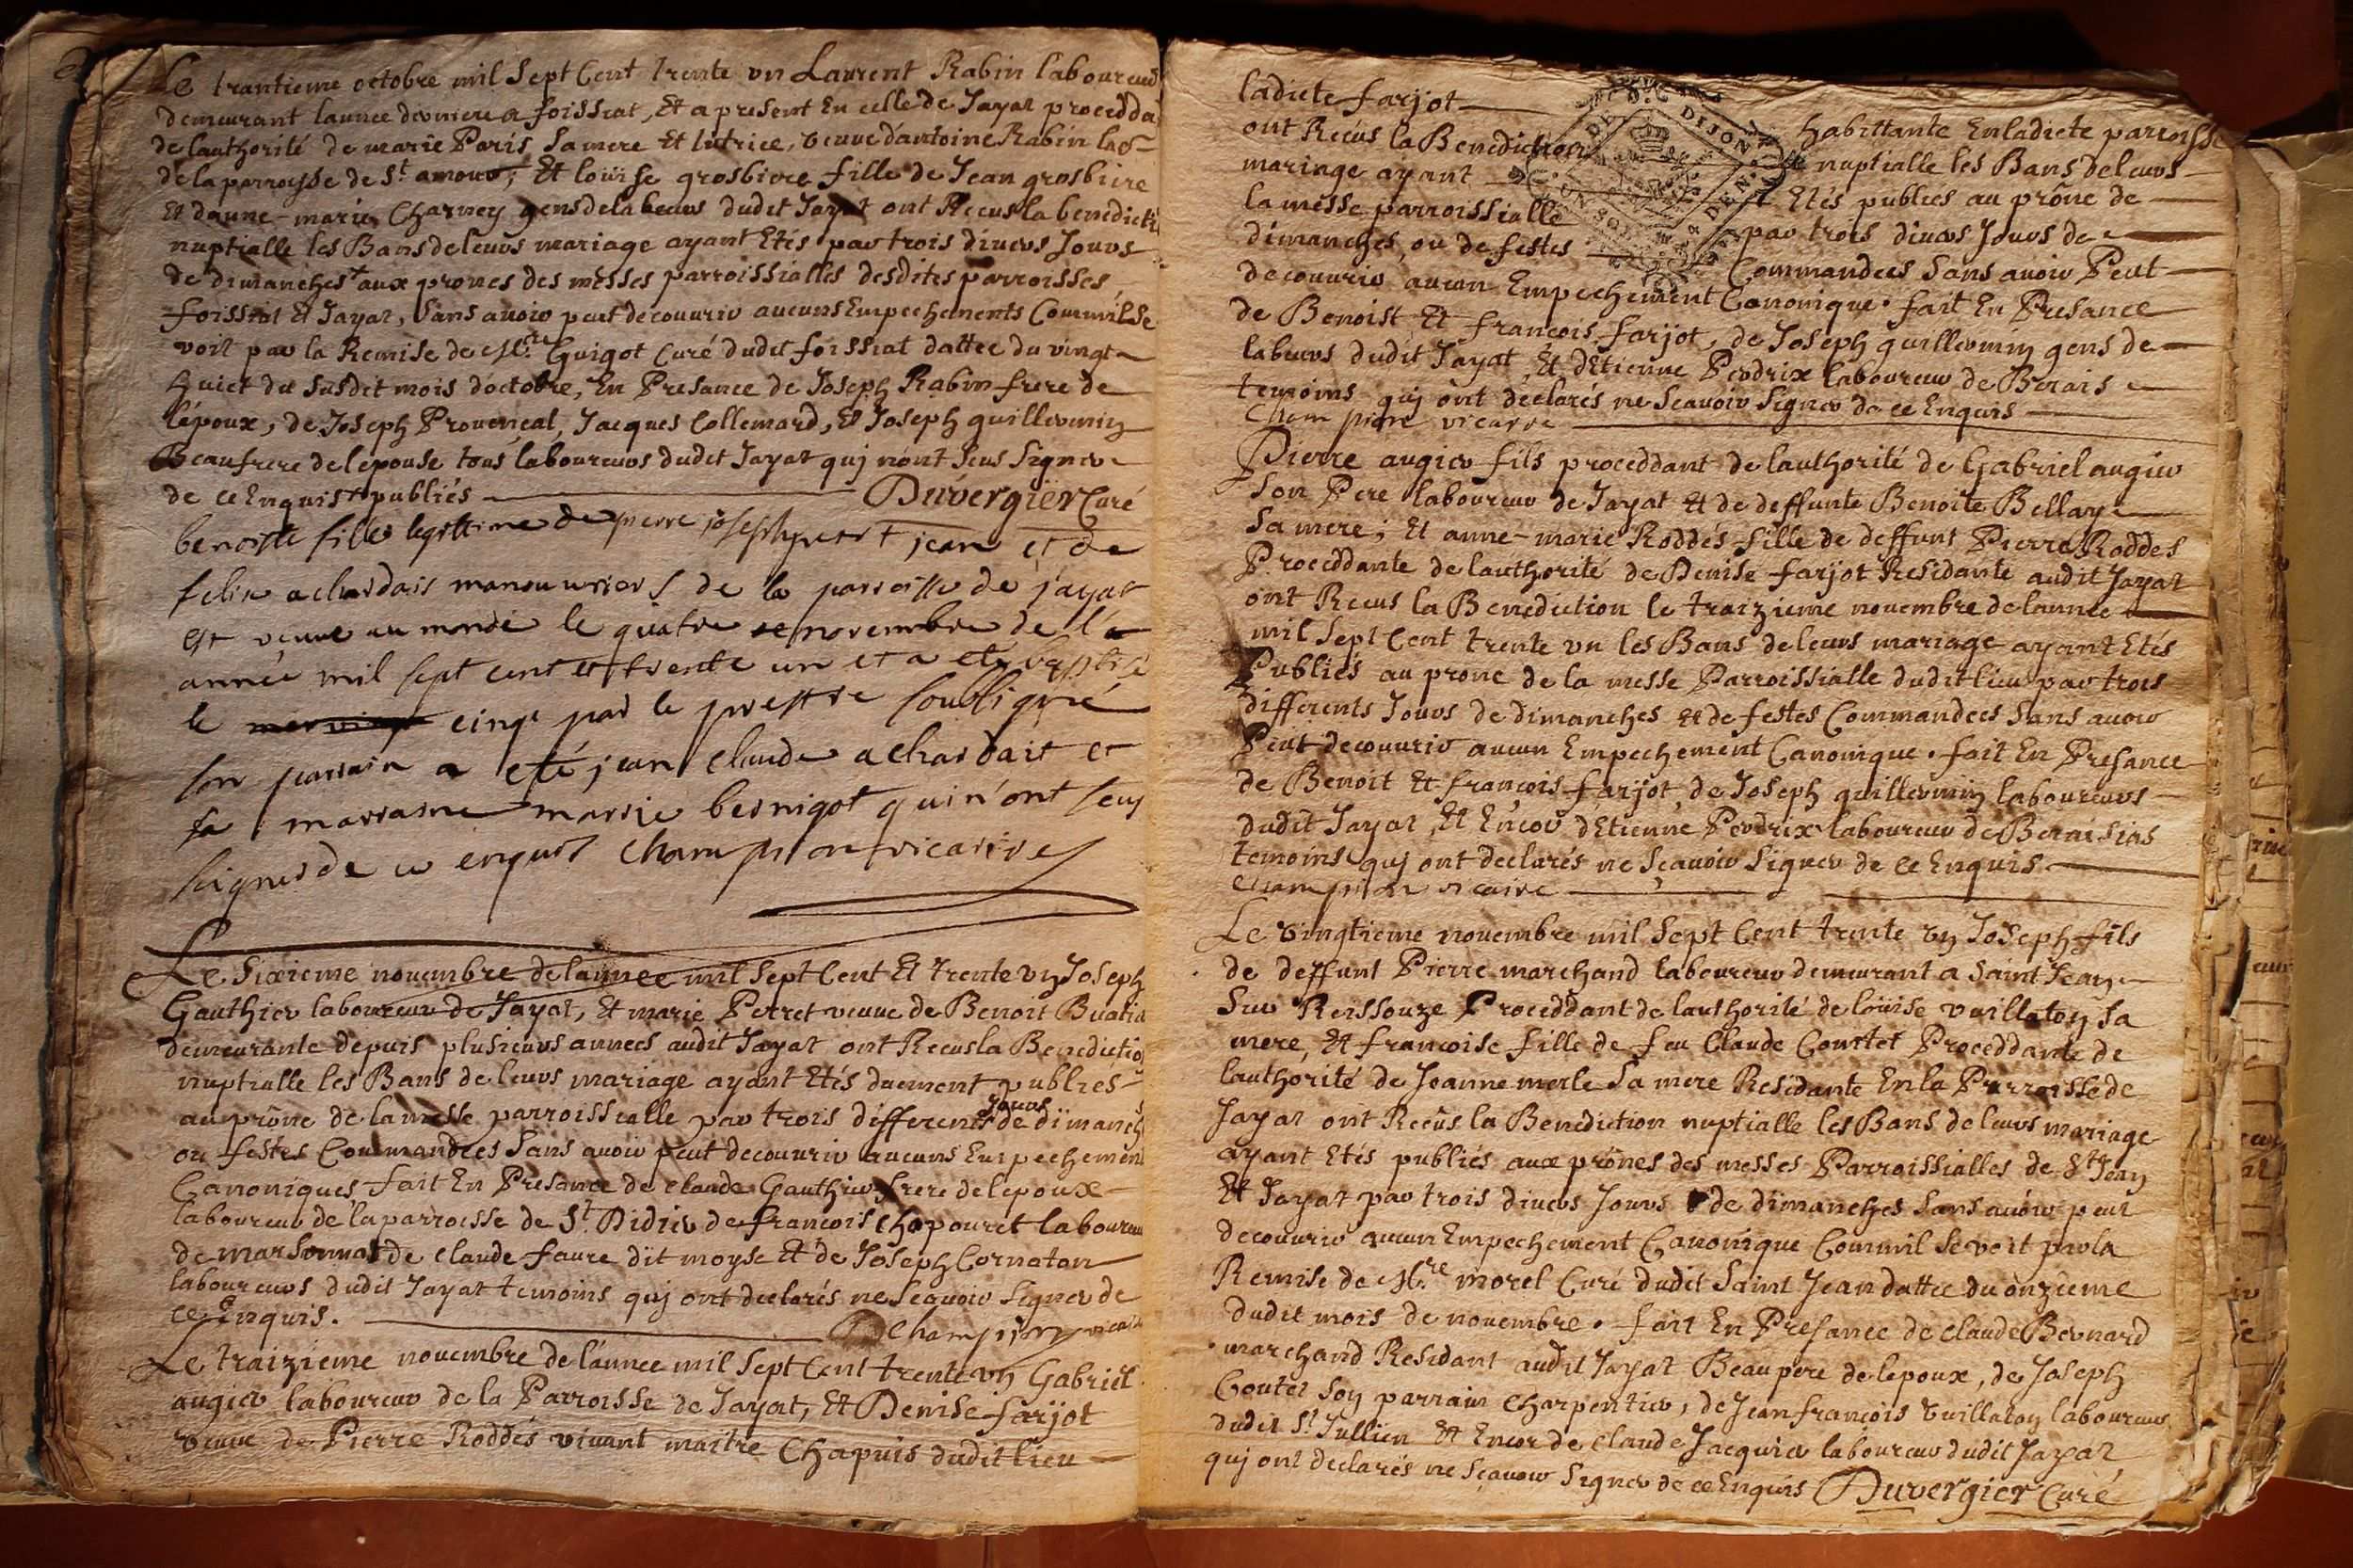 Le trantieme octobre mil Sept Cent trente vn Laurent Rabin laboureur
demeurant lannee derniere a foissiat, Et a present En celle de Jayat procedda
de lauthorité de marie Paris Sa mere Et tutrice, veuve dantoine Rabin
de la parroisse de St. amour; Et loüise grosbiere fille de Jean grosbiere
Et danne-marie Charvey gens de labeurs dudit Jayat ont Recus la benedicti
nuptialle les Bans de leurs mariage ayant Etés par trois divers Jours
de dimanches + aux prones des messes parroissialles desdites parroisses
foissiat Et Jayat, Sans avoir peut decouvrir aucuns Empechements Comm'il Se
voit par la Remise de Mre Guigot Curé dudit foissiat dattee du vingt
huict du Susdit mois doctobre, En Presance de Joseph Rabin frere de
lépoux, de Joseph Provençal, Jacques Collemard, Et Joseph guillermin
Beaufrere de lepouse tous laboureurs dudit Jayat quj n'ont Seus Signer
de ce Enquis + publiés Duvergier Curé
benoiste fille legittime de pierre joseph petit jean et de
felix achardais manouvriers de la parroisse de jayat
est venue au monde le quatre novembre de l'a
année mil sept cent et trente un et a eté baptisé
le cinqt par le prestre soubsigné
son parrain a eté jean claude achardait et
sa marraine marie bernigot qui n'ont seus
signer de ce enquis Champion vicaire
Le Sixieme novembre de lannee mil Sept Cent Et trente vn Joseph
Gauthier laboureur de Jayat, Et marie Perret veuve de Benoit
demeurante depuis plusieurs annees audit Jayat ont Recus la Benedictio
nuptialle les Bans de leurs mariage ayant Etés duement publies
au prône de la messe parroissialle par trois differents Jours de dimanch
ou festes Commandees Sans avoir peut decouvrir aucuns Empechemen
Canoniques fait En Presance de claude Gauthier frere de lepoux
laboureur de la parroisse de St. Didier de francois chapouret laboureur
de marsonnat de claude faure dit moyse Et de Joseph Cornaton
laboureurs dudit Jayat temoins quj ont declarés ne Scavoir Signer de
ce Enquis. Champion vicaire
Le traizieme novembre de lannee mil Sept Cent trente vn Gabriel
augier laboureur de la Parroisse de Jayat, Et Denise farjot
veuve de Pierre Roddés vivant maitre Chapuis dudit lieu
ladicte farjot habittante En ladicte parroisse
ont Recus la Benediction nuptialle les Bans de leurs
mariage ayant Etés publies au prône de
la messe parroissialle par trois divers Jours de
dimanches, ou de festes Commandees Sans avoir Peut
decouvrir aucun Empechement Canonique. fait En Presance
de Benoist Et francois farjot, de Joseph guillermin gens de
labeurs dudit Jayat, Et dEtienne Perdrix laboureur de
temoins quj ont declarés ne Scavoir Signer de ce Enquis
Champion vicaire
Pierre augier fils proceddant de lauthorité de Gabriel augier
Son Pere laboureur de Jayat Et de deffunte Benoite Bellay
Sa mere; Et anne-marie Roddés fille de deffunt Pierre Roddés
Proceddante de lauthorité de Denise farjot Residante audit Jayat
ont Recus la Benediction le traizieme novembre de lannee
mil Sept Cent trente vn les Bans de leurs mariage ayant Etés
Publiés au prone de la messe Parroissialle dudit lieu par trois
differents Jours de dimanches et de festes Commandees Sans avoir
Peut decouvrir aucun Empechement Canonique. fait En Presance
de Benoit Et francois farjot, de Joseph guillermin laboureurs
dudit Jayat, Et Encor dEtienne Perdrix laboureur de
temoins quj ont declarés ne Sçavoir Signer de ce Enquis
Champion vicaire
Le vingtieme novembre mil Sept Cent trente vn Joseph fils
de deffunt Pierre marchand laboureur demeurant a Saint Jean
Sur Reissouze Proceddant de lauthorité de loüise vuillaton Sa
mere, Et francoise fille de feu Claude Contet Proceddante de
lauthorité de Jeanne merle Sa mere Residante En la Parroisse de
Jayat ont Recûs la Benediction nuptialle les Bans de leurs mariage
ayant Etés publiés aux prônes des messes Parroissialles de St Jean
Et Jayat par trois divers Jours de dimanches Sans avoir peut
decouvrir aucun Empechement Canonique Comm'il Se voit par la
Remise de Mre morel Curé dudit Saint Jean dattee du onzieme
dudit mois de novembre. fait En Presance de claude Bernard
marchand Residant audit Jayat Beaupere de lepoux, de Joseph
Contet Son parrain Charpentier, de Jean francois Vuillaton laboureurs
dudit St. Jullien Et Encor de claude Jacquier laboureur dudit Jayat
quj ont declarés ne Sçavoir Signer de ce Enquis Duvergier Curé